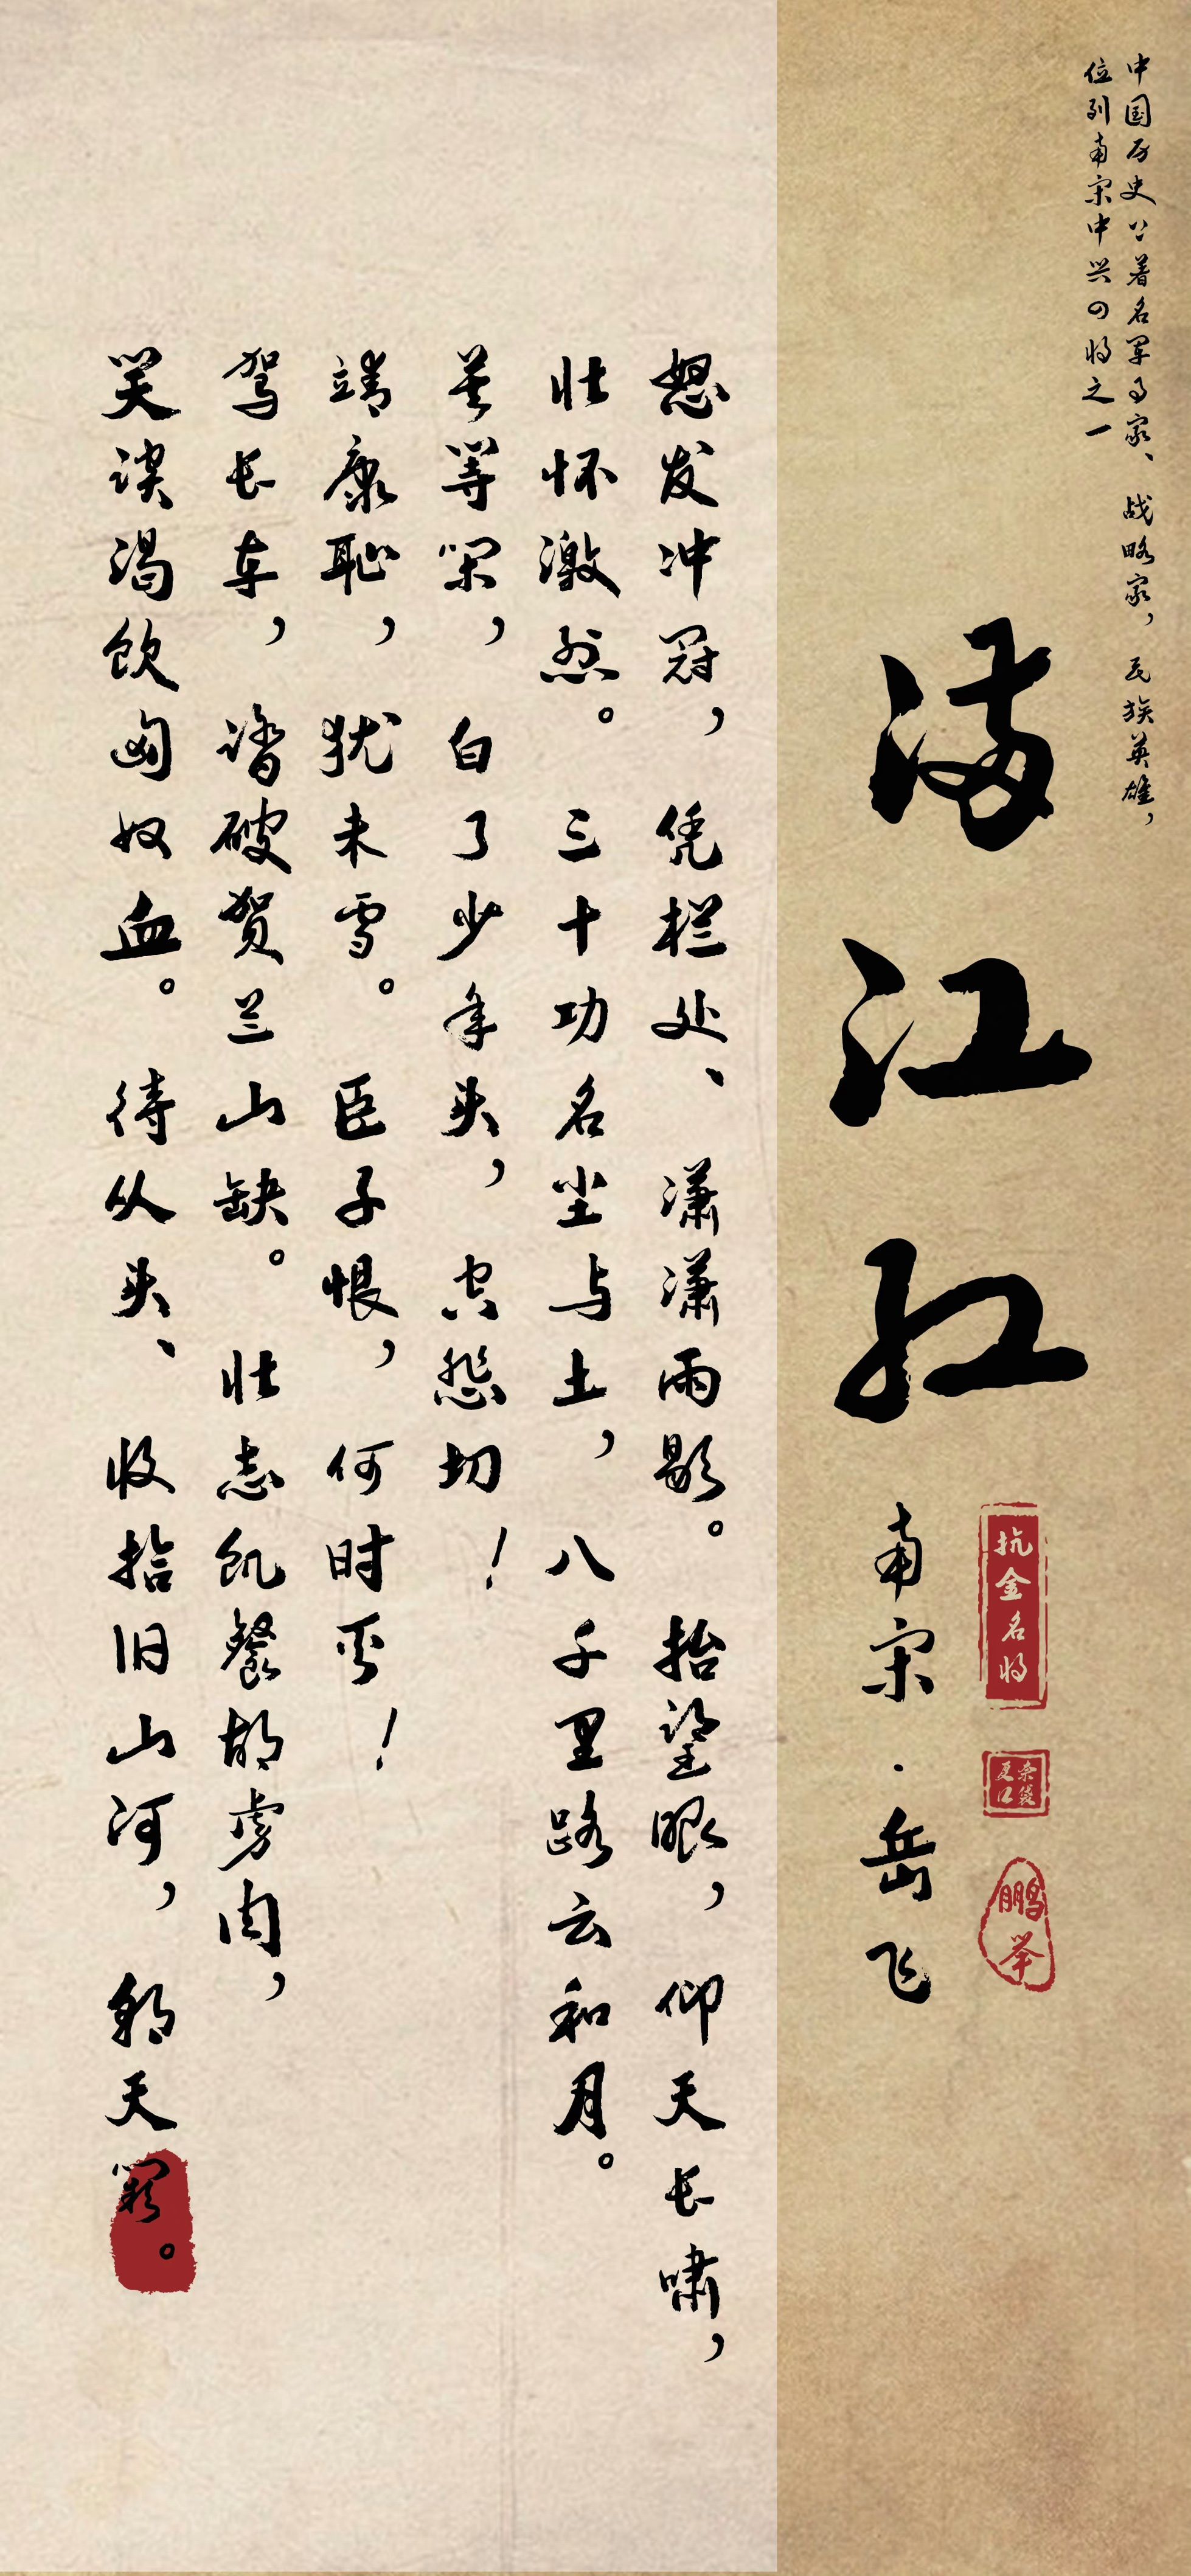 中国历史上著名军事家、战略家，民族英雄，
位列南宋中兴四将之一
满江红
抗金名将
鹏举
南宋·岳飞
怒发冲冠，凭栏处、潇潇雨歇。抬望眼，仰天长啸，
壮怀激烈。三十功名尘与土，八千里路云和月。
莫等闲，白了少年头，空悲切！
靖康耻，犹未雪。臣子恨，何时平！
驾长车，踏破贺兰山缺。壮志饥餐胡虏肉，
笑谈渴饮匈奴血。待从头、收拾旧山河，朝天阙。